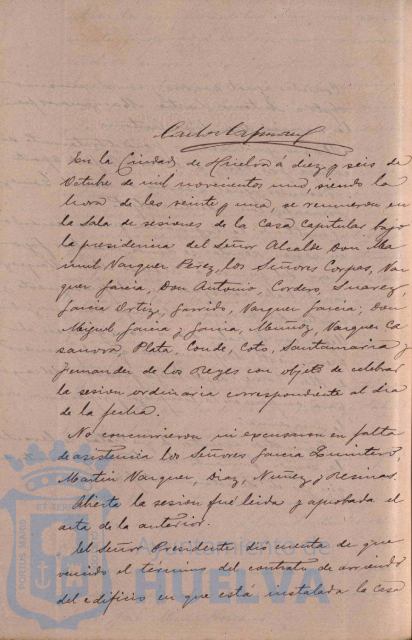 En la Ciudad de Huelva á diez y seis de
Octubre de mil novecientos uno, siendo la
hora de las veinte y una, se reunieron en
la Sala de sesiones de la Casa Capitular bajo
la presidencia del Señor Alcalde Don Ma
nuel Vazquez Perez, los Señores Corpas, Vaz
quez Garcia, Don Antonio, Cordero, Suarez,
Garcia Ortiz, Garrido, Vazquez Garcia, Don
Miguel, Garcia y Garcia, Muñoz, Vazquez Ca
sanova, Plata, Conde, Coto, Santamaria y
Fernandez de los Reyes con objeto de celebrar
la sesion ordinaria correspondiente al dia
de la fecha.
No concurrieron ni escusaron su falta
de asistencia los Señores Garcia Quintero,
Martin Vazquez, Diaz, Nuñez y Resinas.
Abierta la sesion fué leida y aprobada el
acta de la anterior.
El Señor Presidente dió cuenta de que
vencido el término del contrato de arriendo
del edificio en que está instalada la Casa
PORTUS MARIS
ET TERRAE
Ayuntamiento de
HUELVA